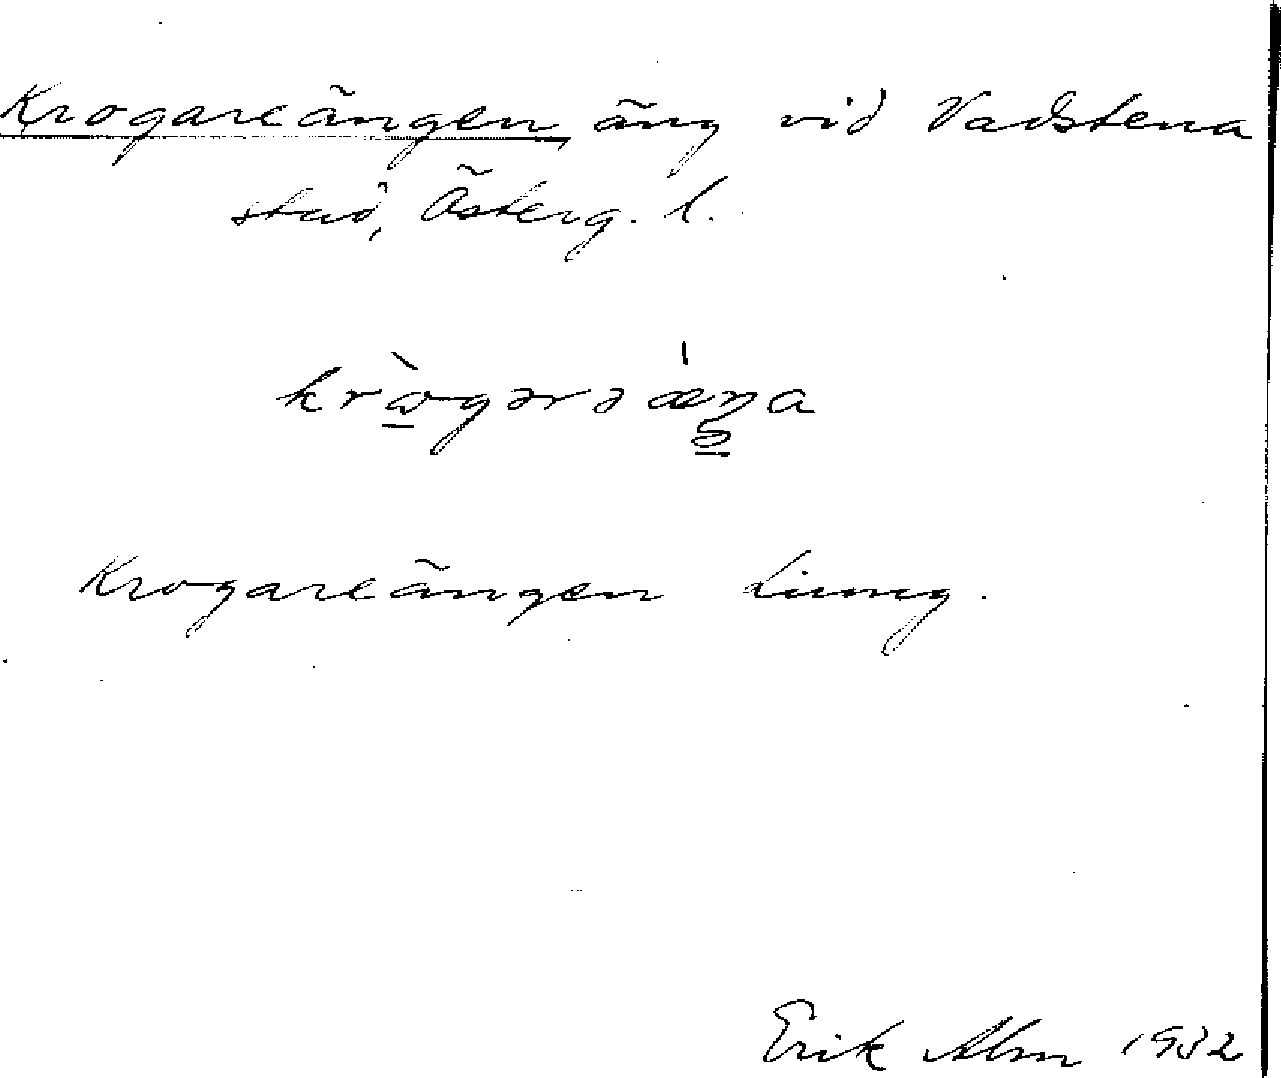 Krogareängen, äng vid Vadstena
stad, Österg. l.
krɷ̀gərəǽŋa
Krogareängen Ljung.
Erik Alm 1932